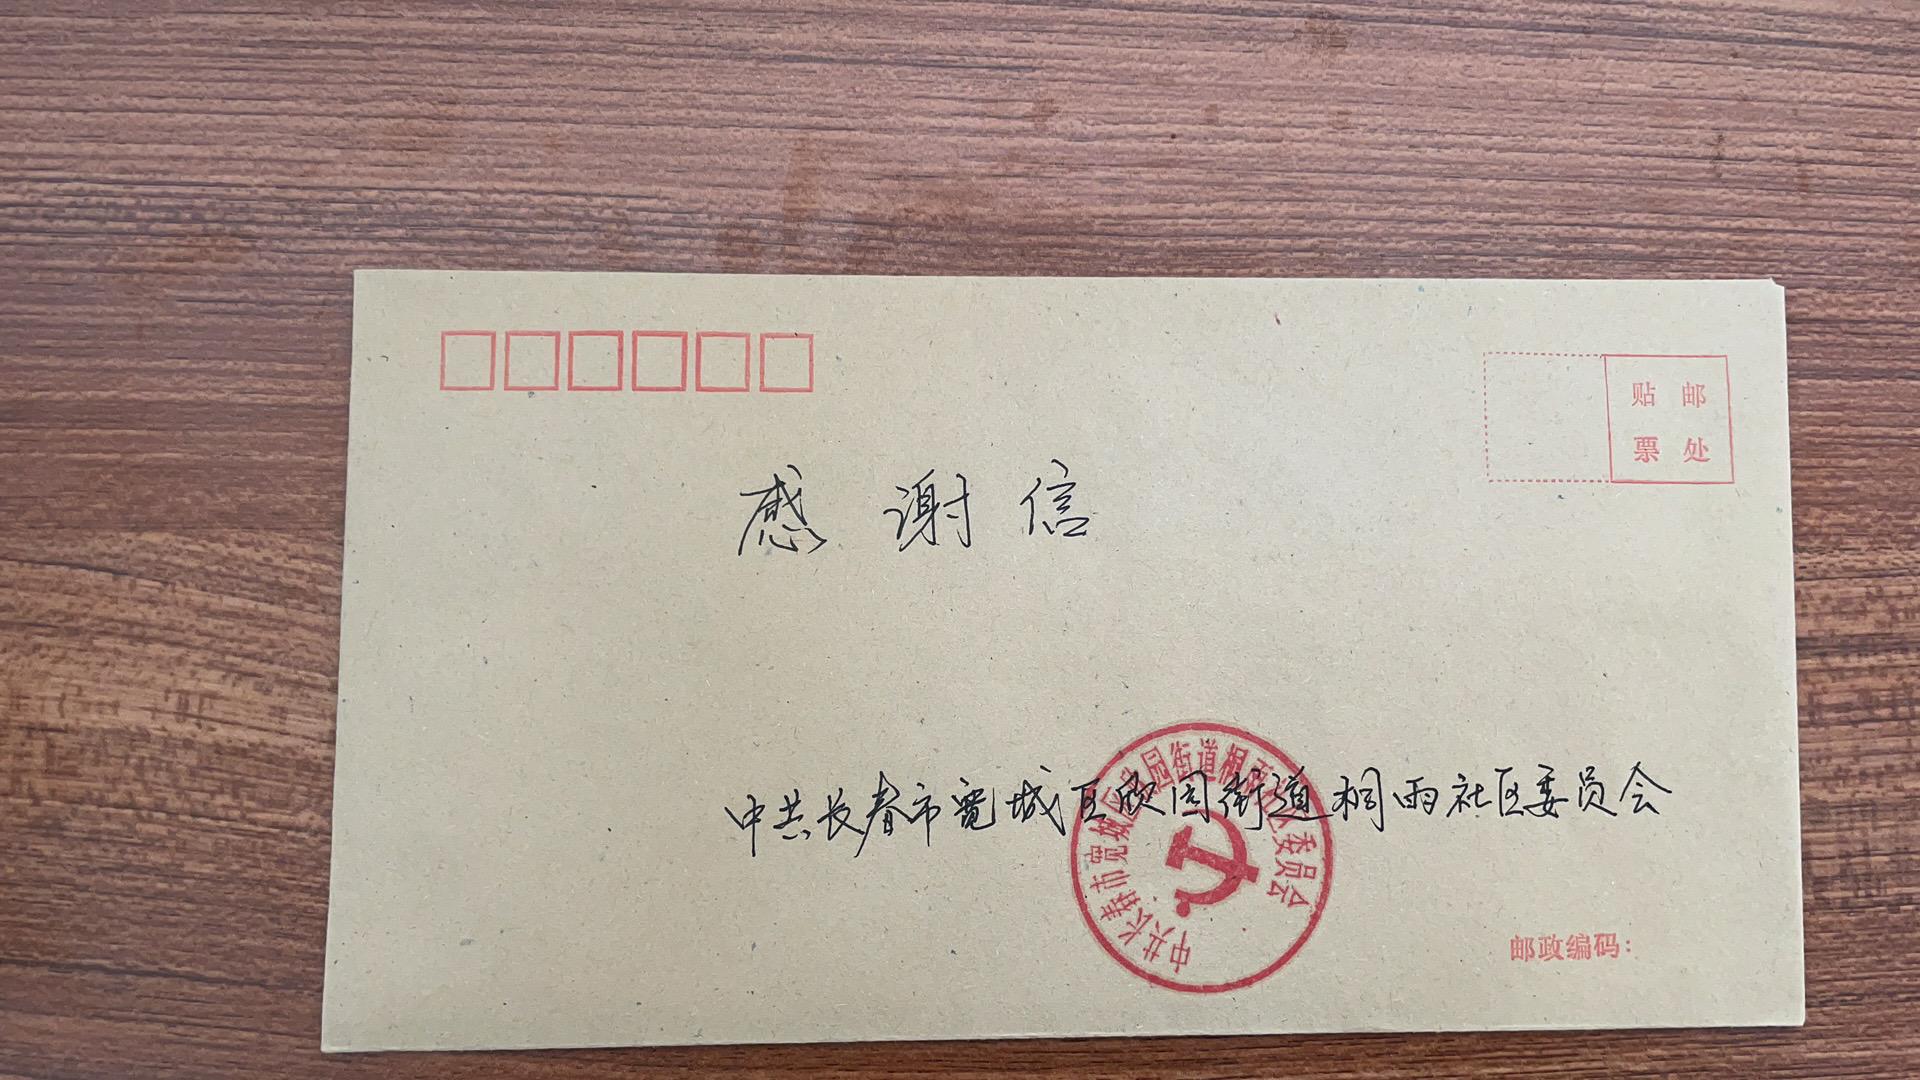 贴邮
票处
感谢信
中共长春市宽城区欣园街道桐雨社区委员会
中共长春市宽城区欣园街道桐雨社区委员会
邮政编码：